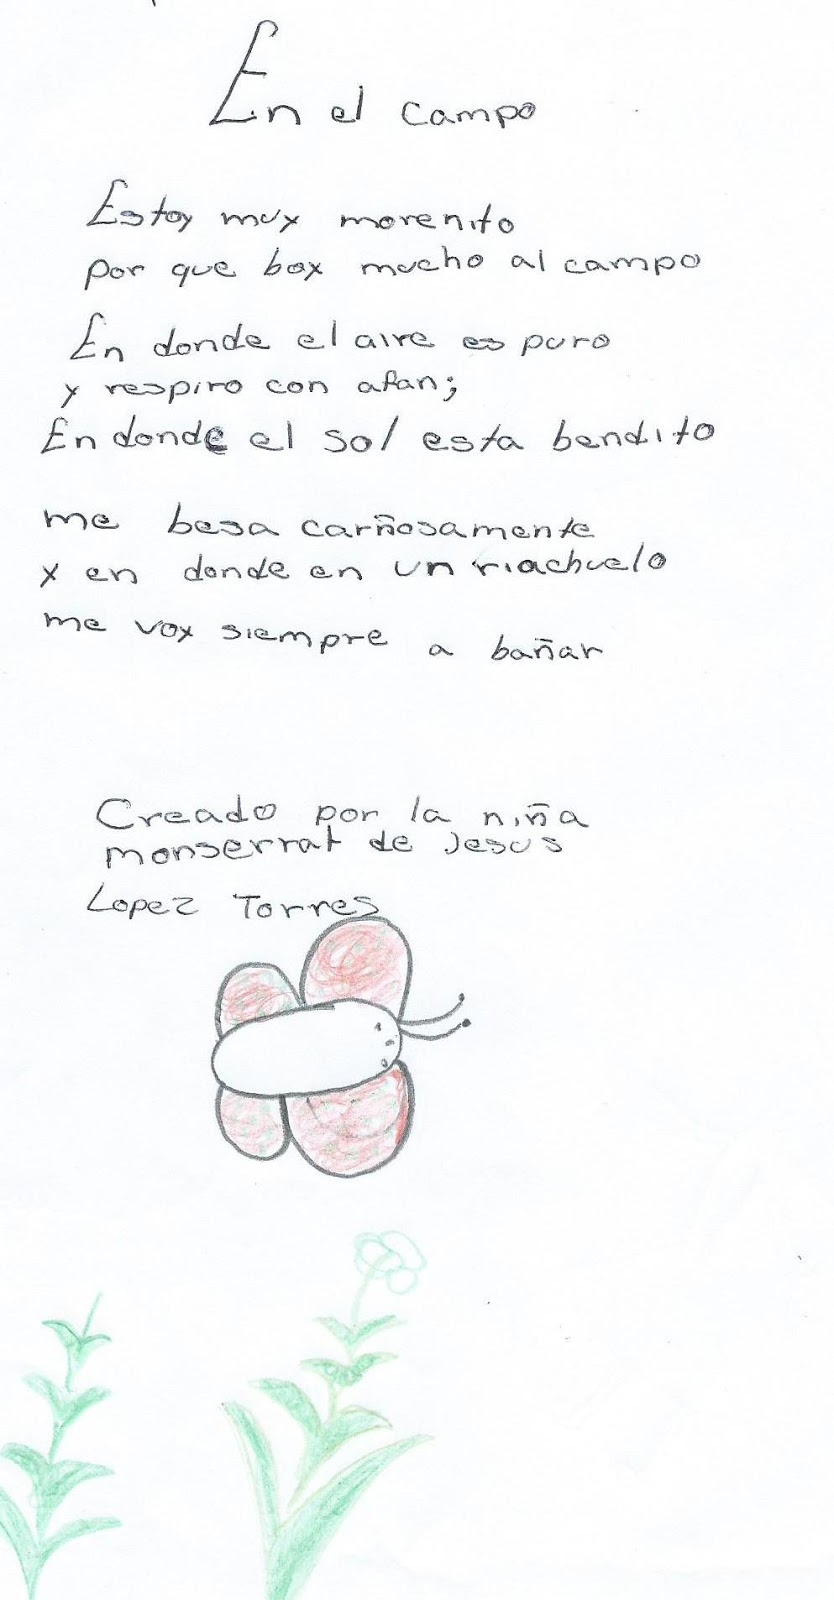 En el campo
Estoy muy morenito
por que boy mucho al campo
En donde el aire es puro
y respiro con afan;
En donde el sol esta bendito
me besa carñosamente
y en donde en un riachuelo
me voy siempre a bañar
Creado por la niña
monserrat de Jesus
Lopez Torres